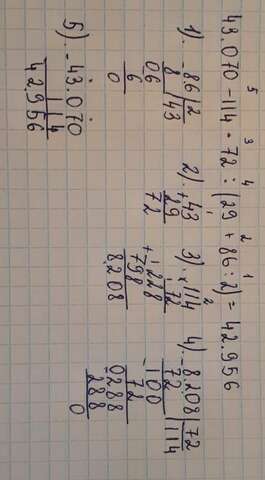 5 3 4 2 1
43.070-114·72:(29+86:2)=42.956
1).-8.6|2
8|43
06
6
0
2).+43
29
72
3).×114
72
228
+798
8.208
4).-8.208|72
72|114
-100
72
0288
288
0
5).-43.070
114
42.956